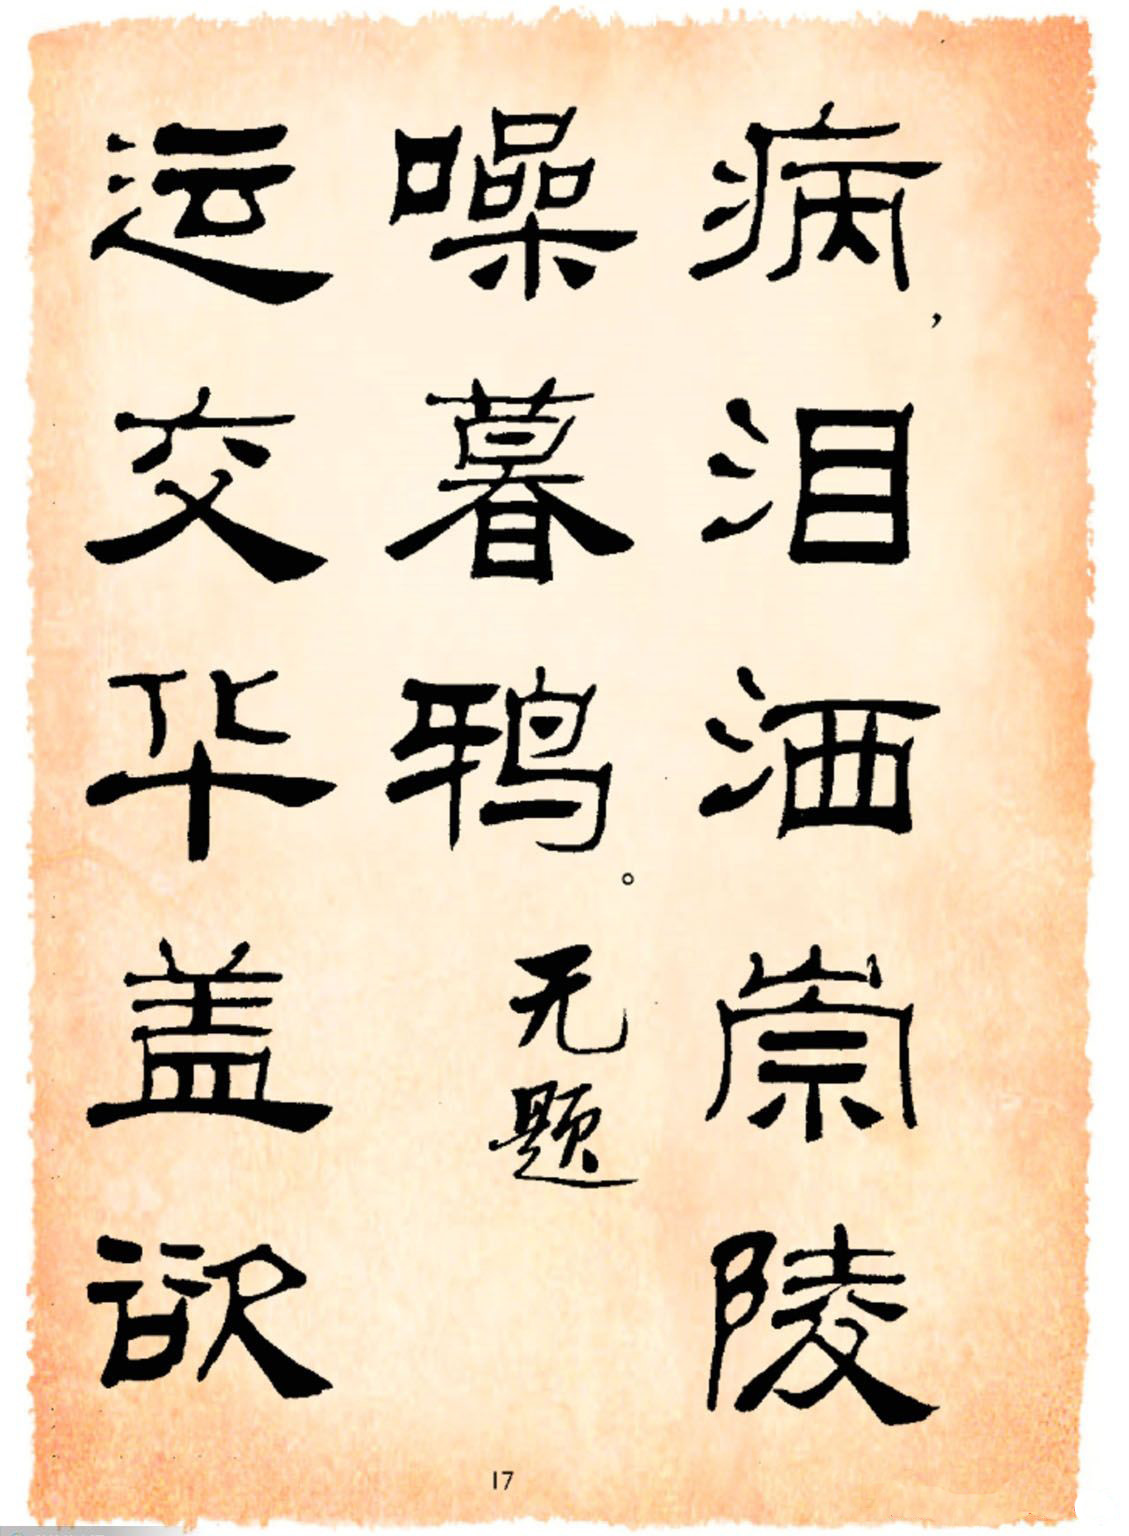 病，泪洒崇陵
噪暮鸦。
无题
运交华盖欲
17